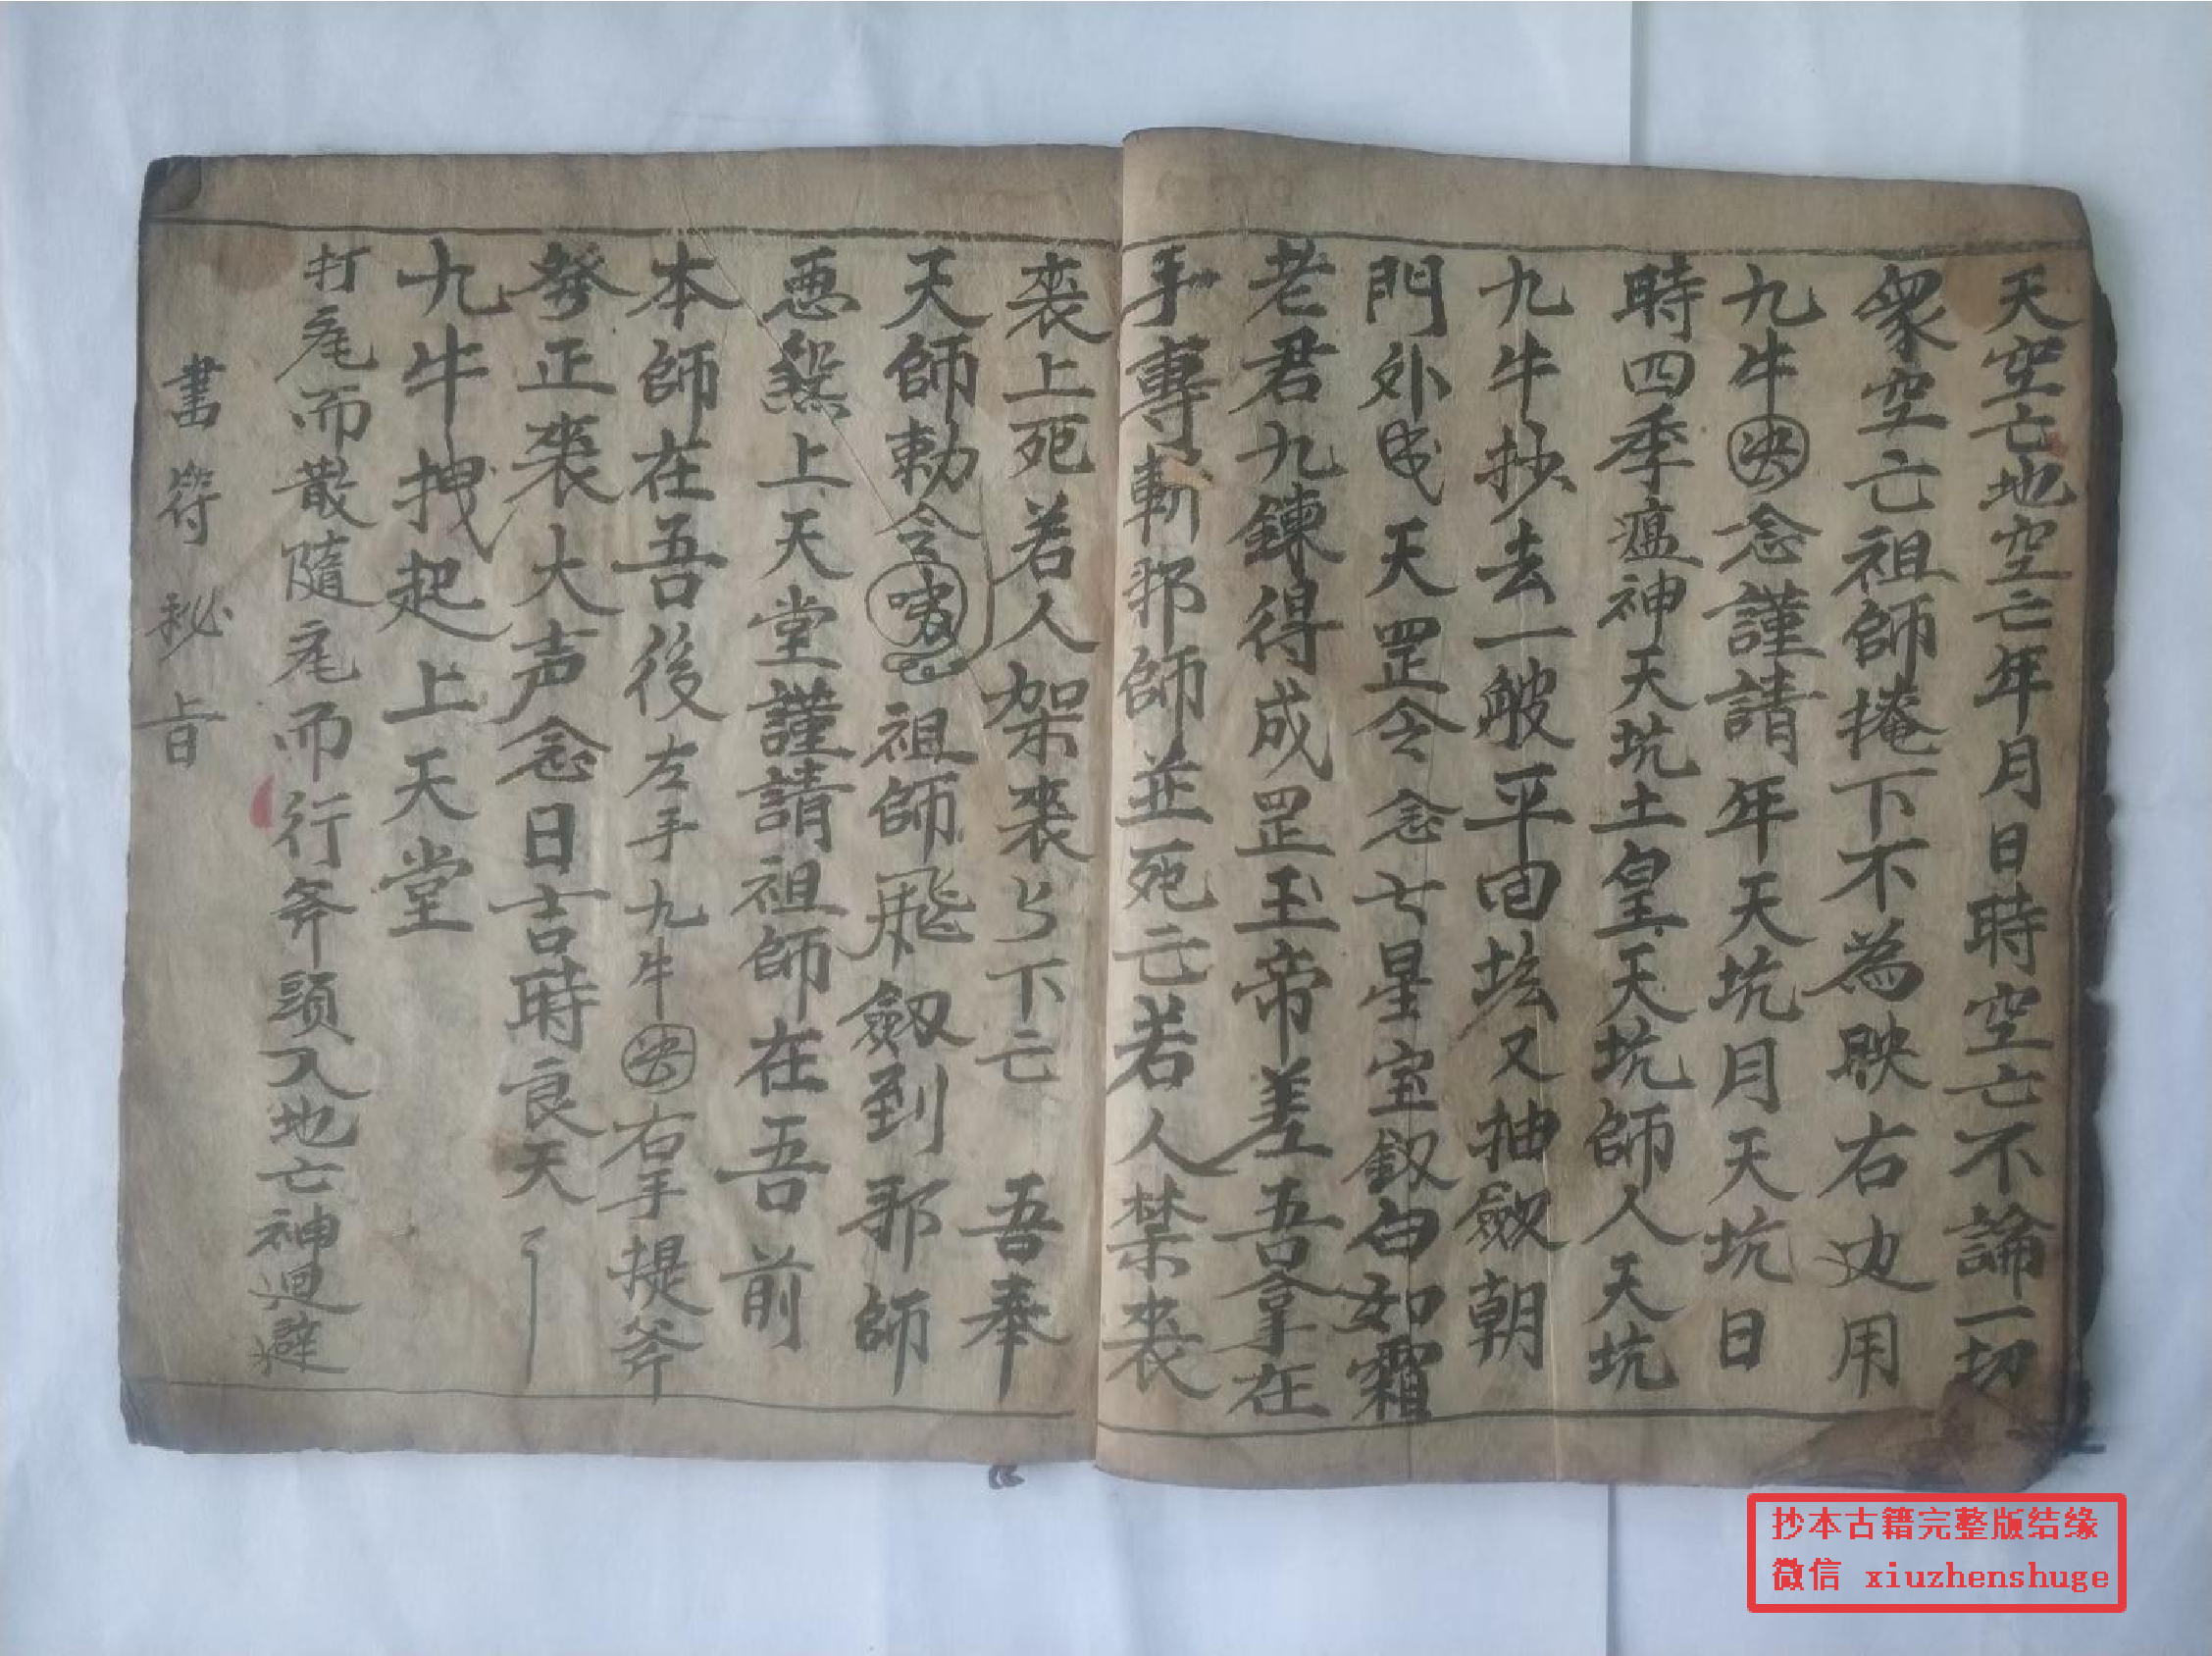 天空亡地空亡年月日時空亡不論一切
眾空亡祖師掩下不為映右边用
九牛念謹請年天坑月天坑日
時四季瘟神天坑土皇天坑師人天坑
九牛抄去一皷平田坛又抽劔朝
門外天罡令念七星宝釼白如霜
老君九鍊得成罡玉帝差吾拿在
手專斬邪師並死亡若人禁裘
裘上死若人架裘下亡 吾奉
天師勅令祖師飛劔到邪師
悪煞上天堂謹請祖師在吾前
本師在吾後左手九牛右手提斧
發正裘大声念日吉時良天
九牛拽起上天堂
打尾而散隨尾而行斧頭入地亡神迴避
書符秘旨
抄本古籍完整版结缘
微信 xiuzhenshuge